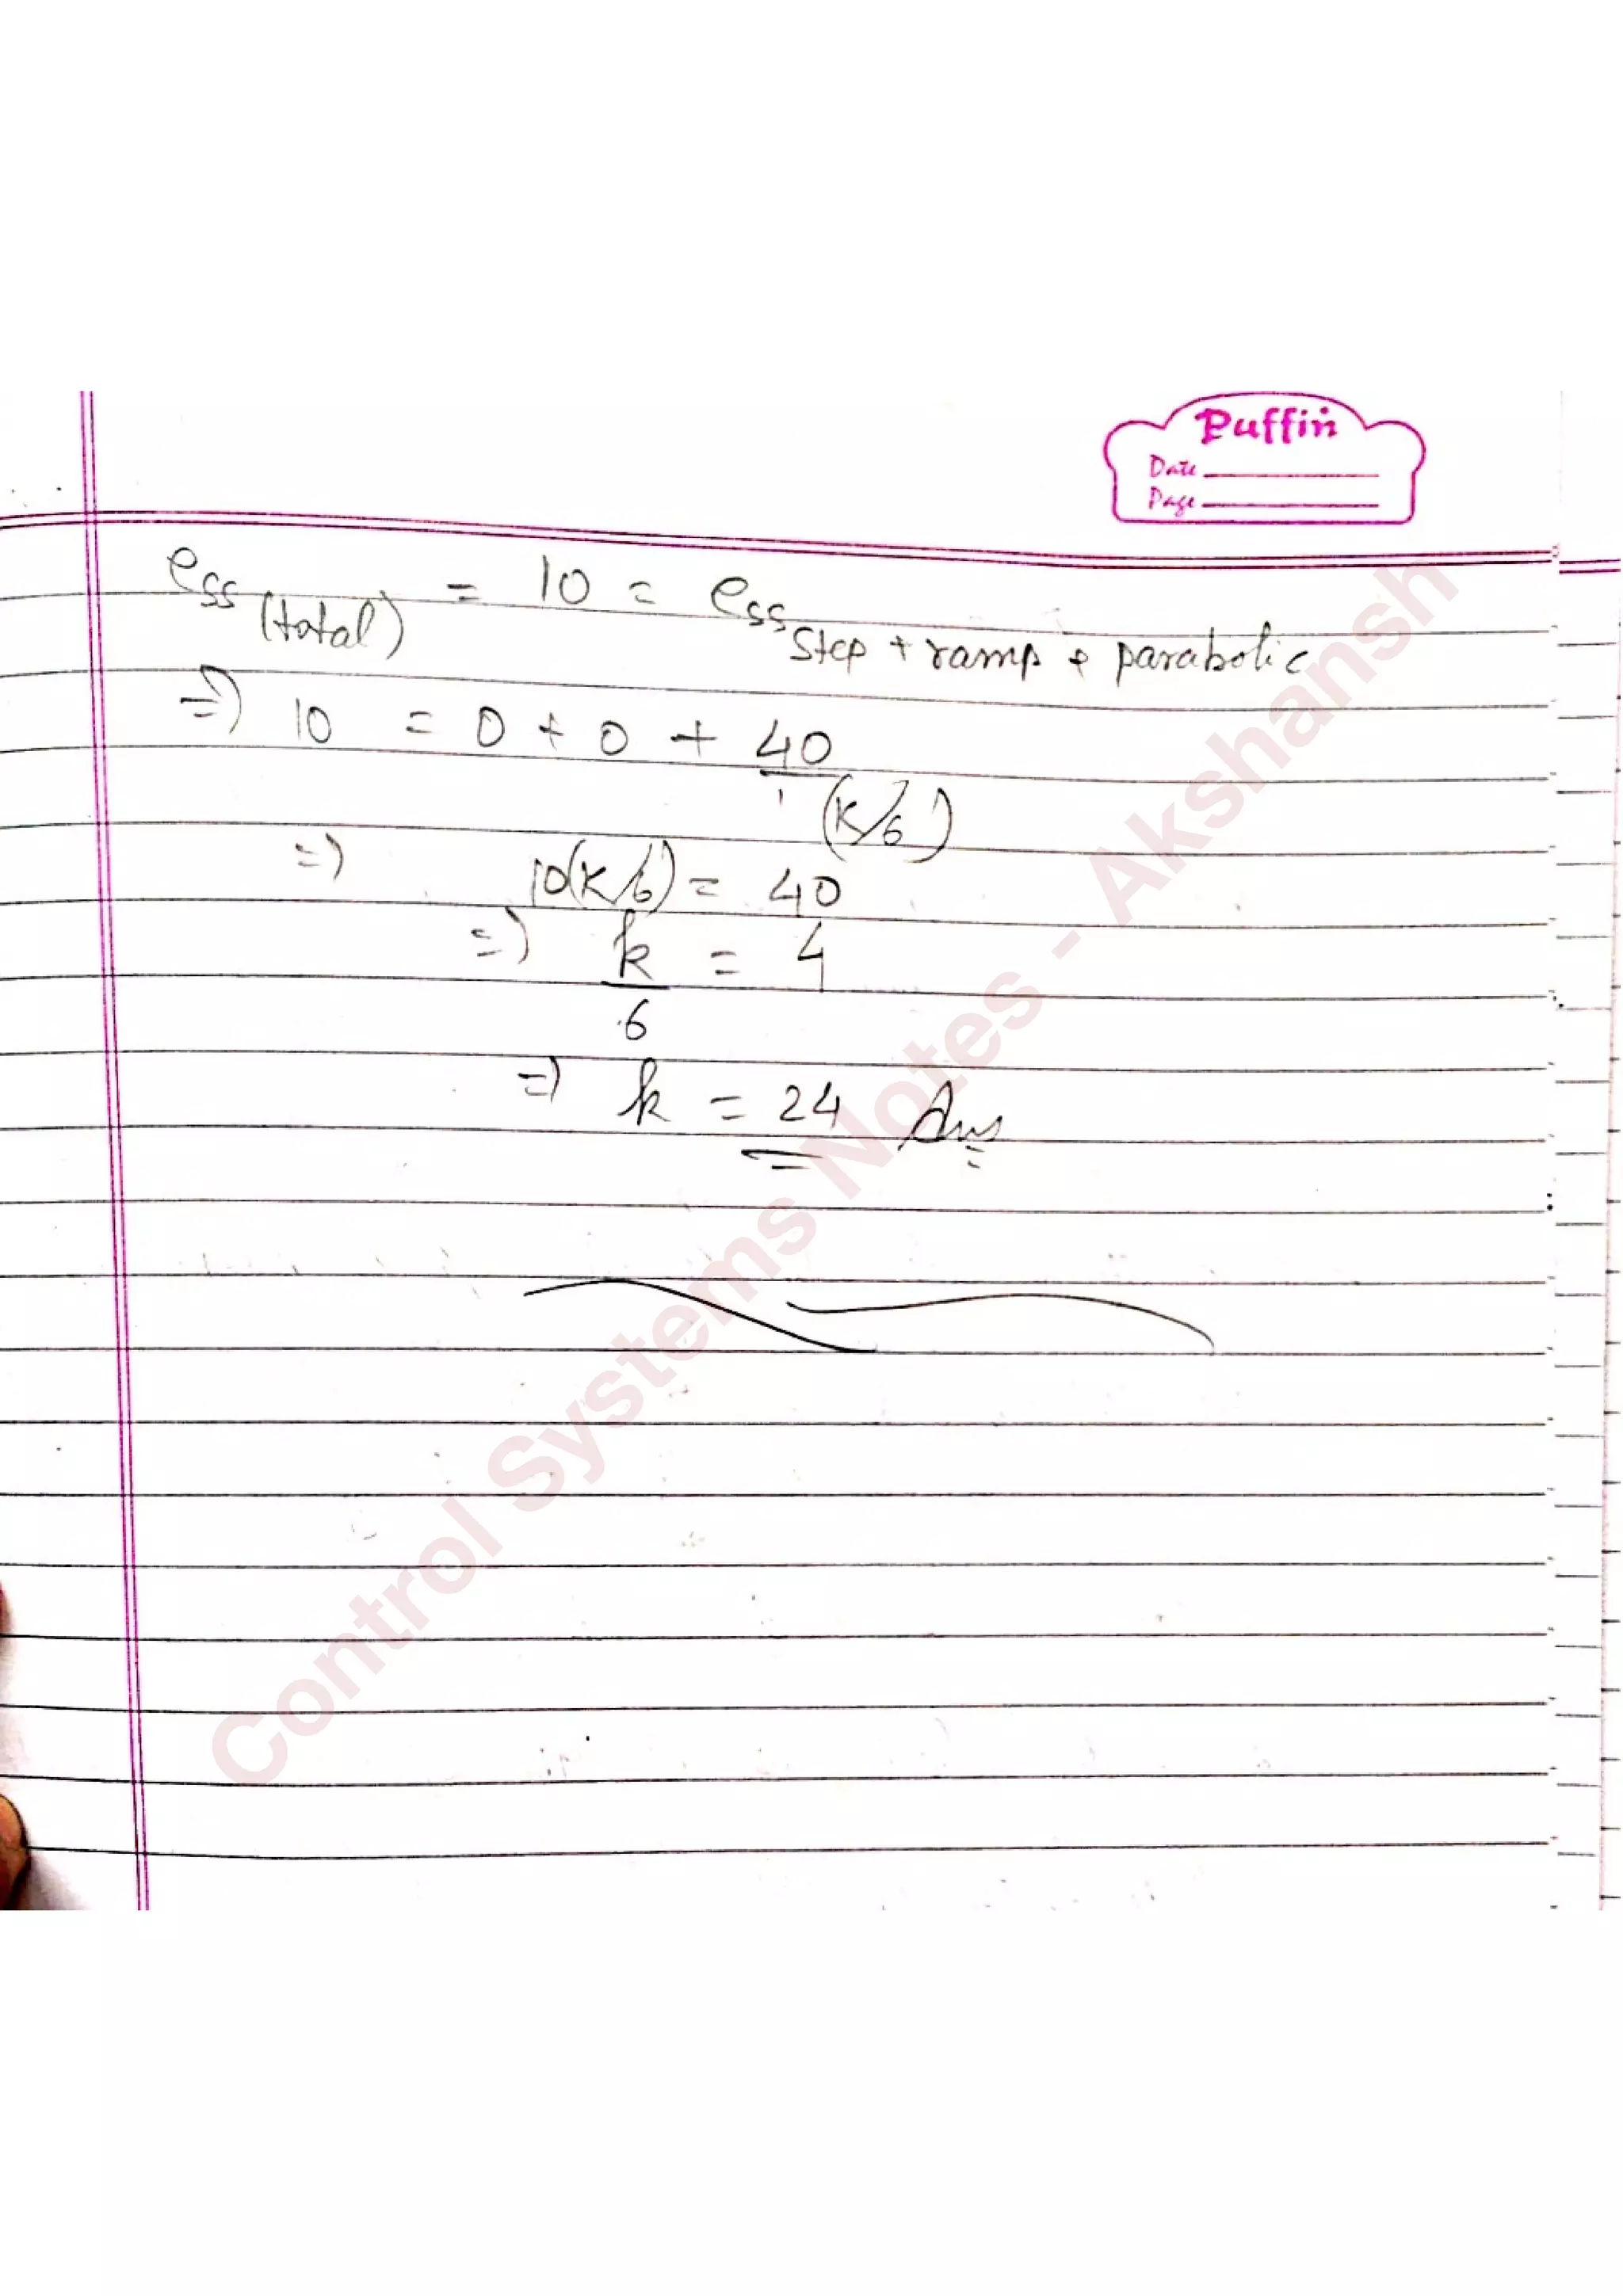 Puffin
Date
Page
ess (total) = 10 = ess step + ramp + parabolic
=) 10 = 0 + 0 + 40 / (K/6)
=) 10(K/6) = 40
=) k/6 = 4
=) k = 24 Ans
Control Systems Notes - Akshansh